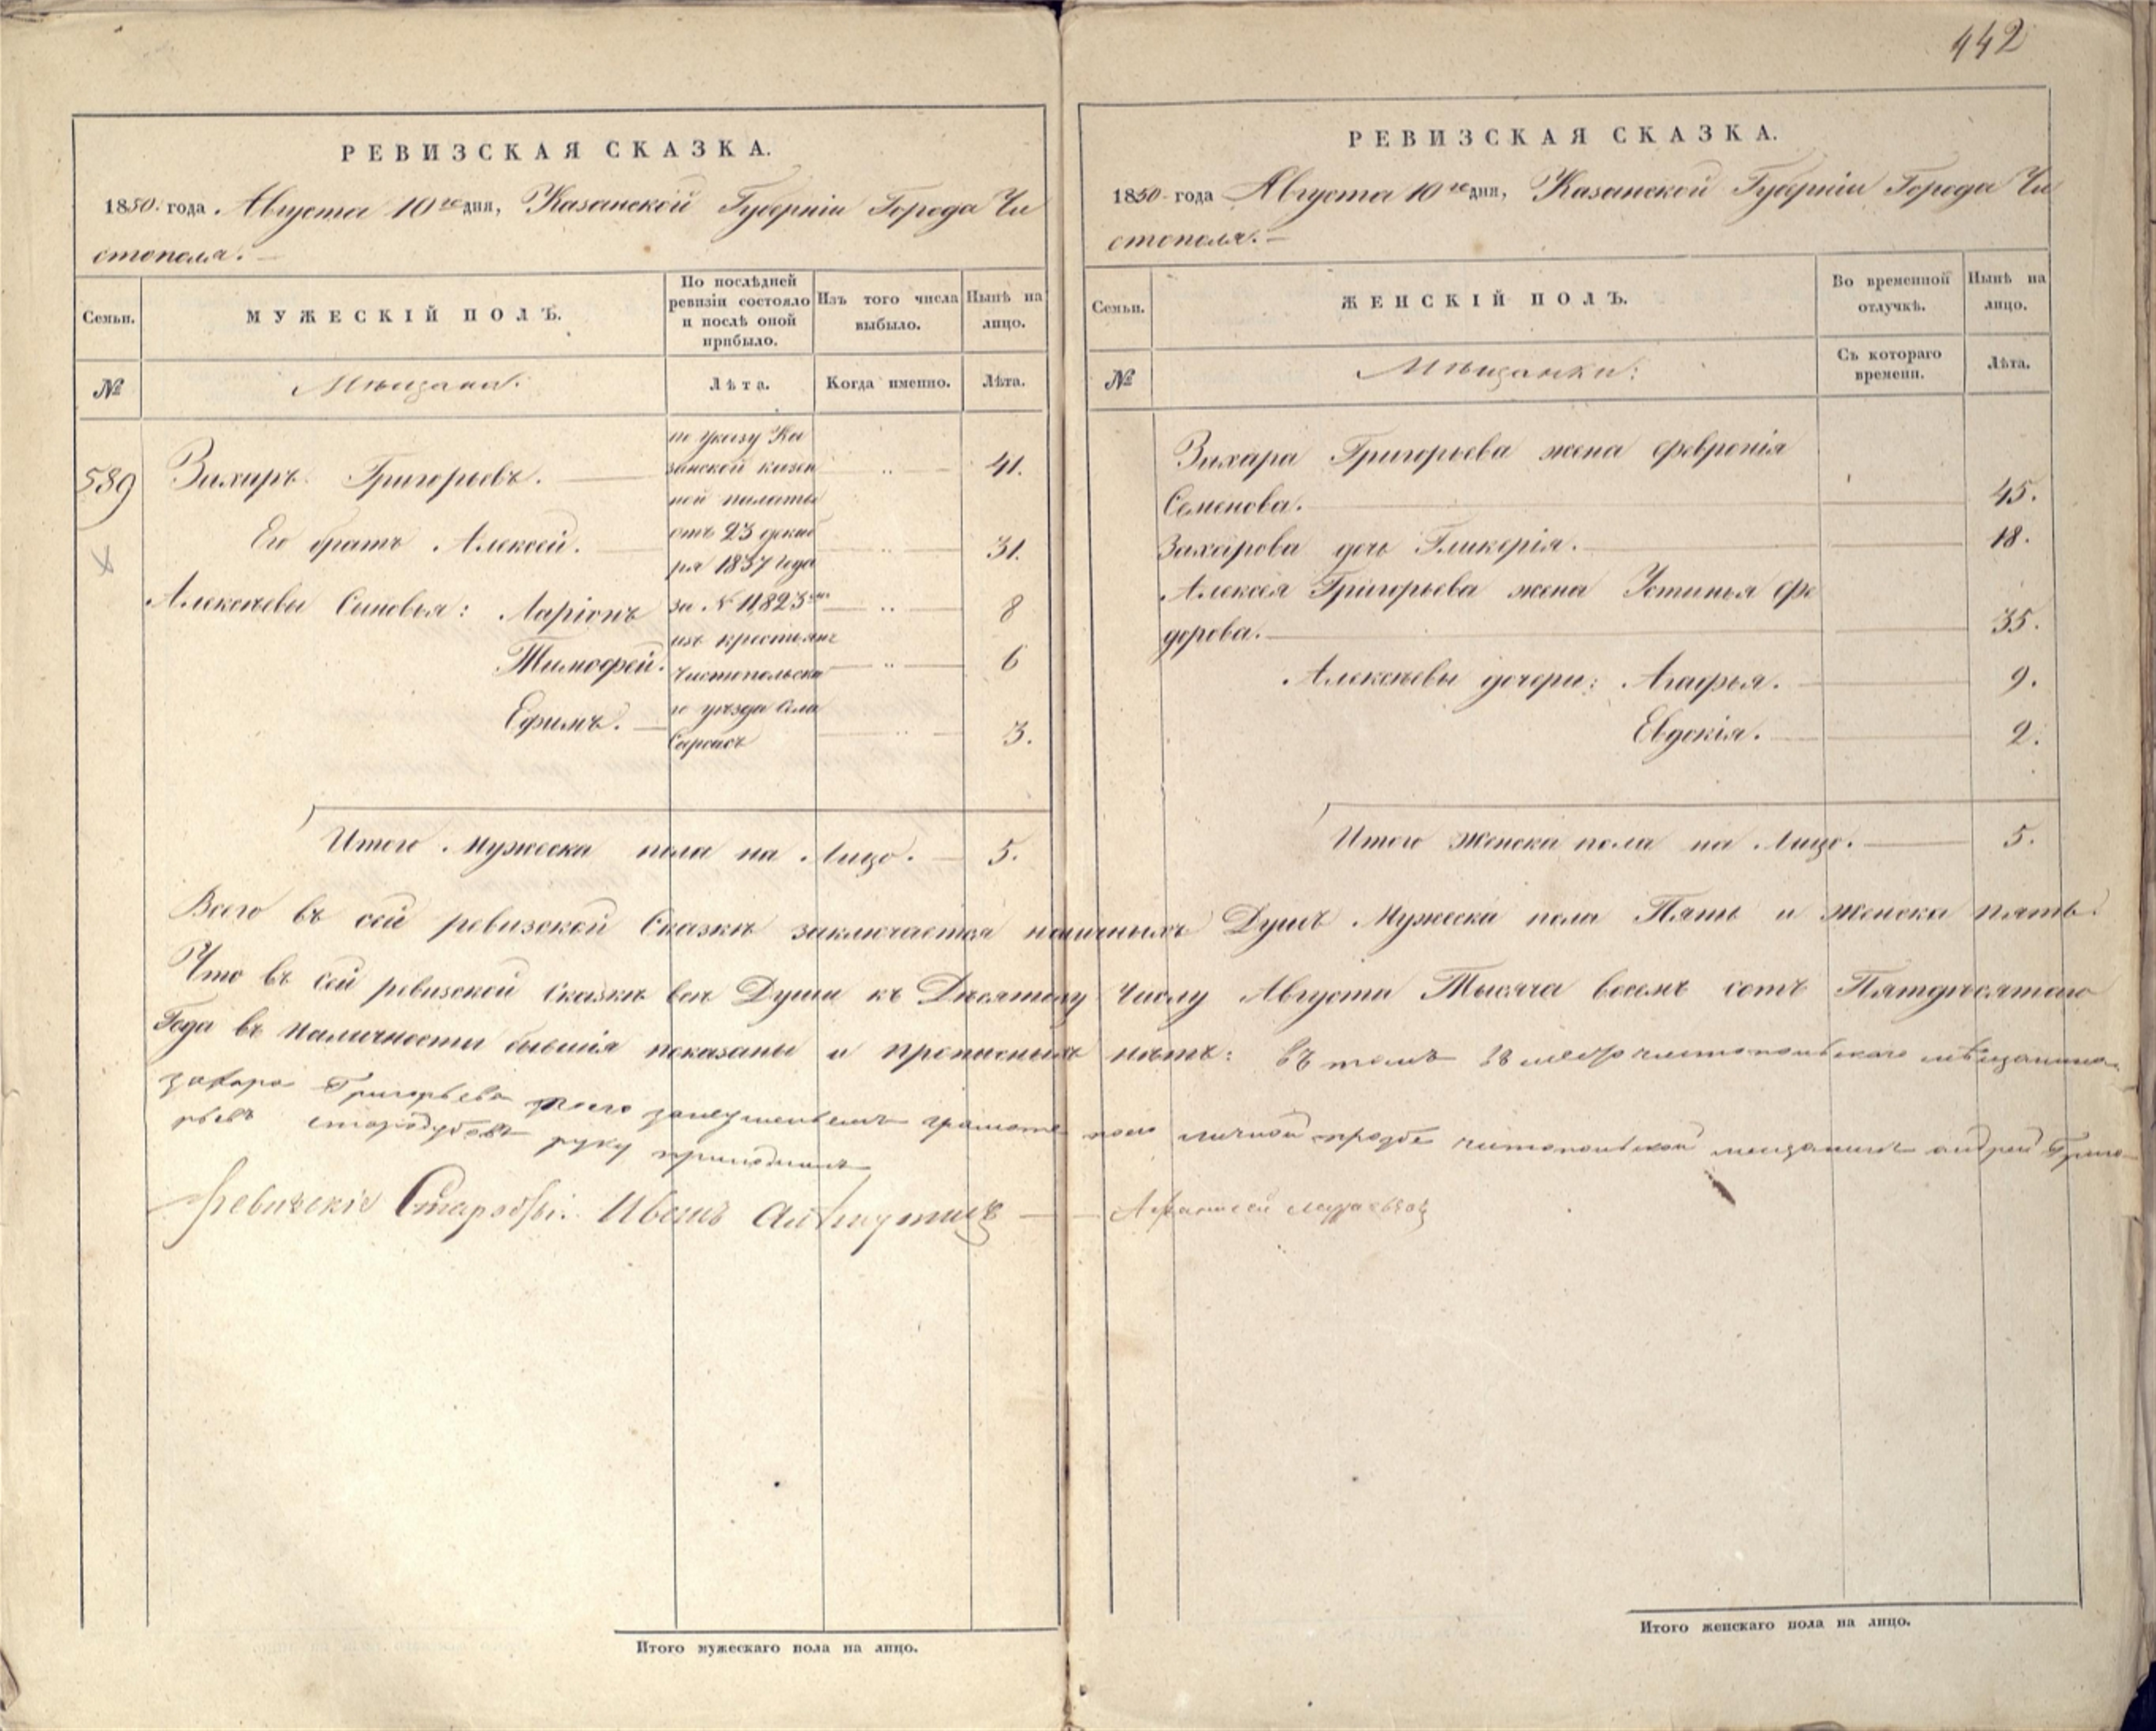 442
РЕВИЗСКАЯ СКАЗКА.
1850. года Августа 10го дня, Казанской Губерніи Города Чи
стополя.
Семьи.
МУЖЕСКІЙ ПОЛЪ.
По послѣдней ревизіи состояло и послѣ оной прибыло.
Изъ того числа выбыло.
Нынѣ на лицо.
№
Мѣщане:
Лѣта.
Когда именно.
Лѣта.
589
Захаръ Григорьевъ. 41.
Его братъ Алексей. 31.
Алексѣевы Сыновья: Ларіонъ 8
Тимофей. 6
Ефимъ. 3.
по указу Ка
занской казен
ной палаты
отъ 23 декаб
ря 1837 года
за № 11823
изъ крестьянъ
Чистопольска
го уѣзда Села
Итого Мужеска пола на Лицо. 5.
РЕВИЗСКАЯ СКАЗКА.
1850 года Августа 10го дня, Казанской Губерніи Города Чи
стополя.
Семьи.
ЖЕНСКІЙ ПОЛЪ.
Во временной отлучкѣ.
Нынѣ на лицо.
№
Мѣщанки:
Съ котораго времени.
Лѣта.
Захара Григорьева жена Февронія
Семенова. 45.
Захарова дочь Гликерія. 18.
Алексея Григорьева жена Устинья Фе
дорова. 35.
Алексѣевы дочери: Агафья. 9.
Евдокія. 2.
Итого Женска пола на Лицо. 5.
Всего въ сей ревизской Сказкѣ заключается наличныхъ Душъ Мужеска пола Пять и Женска пять.
Что въ Сей ревизской Сказкѣ все Души къ Десятому Числу Августа Тысяча восемь сотъ Пятдесятаго
Года въ Наличности бывшія показаны и прописныхъ нѣтъ: въ томъ вместо чистопольскаго мѣщанина
захара Григорьева грамоте по его личной прозбе чистопольской мещанинъ андрей Григо
рьевъ стародубовъ руку приложилъ
Ревизскіе Иванъ
Афанасей
Итого мужескаго пола на лицо.
Итого женскаго пола на лицо.